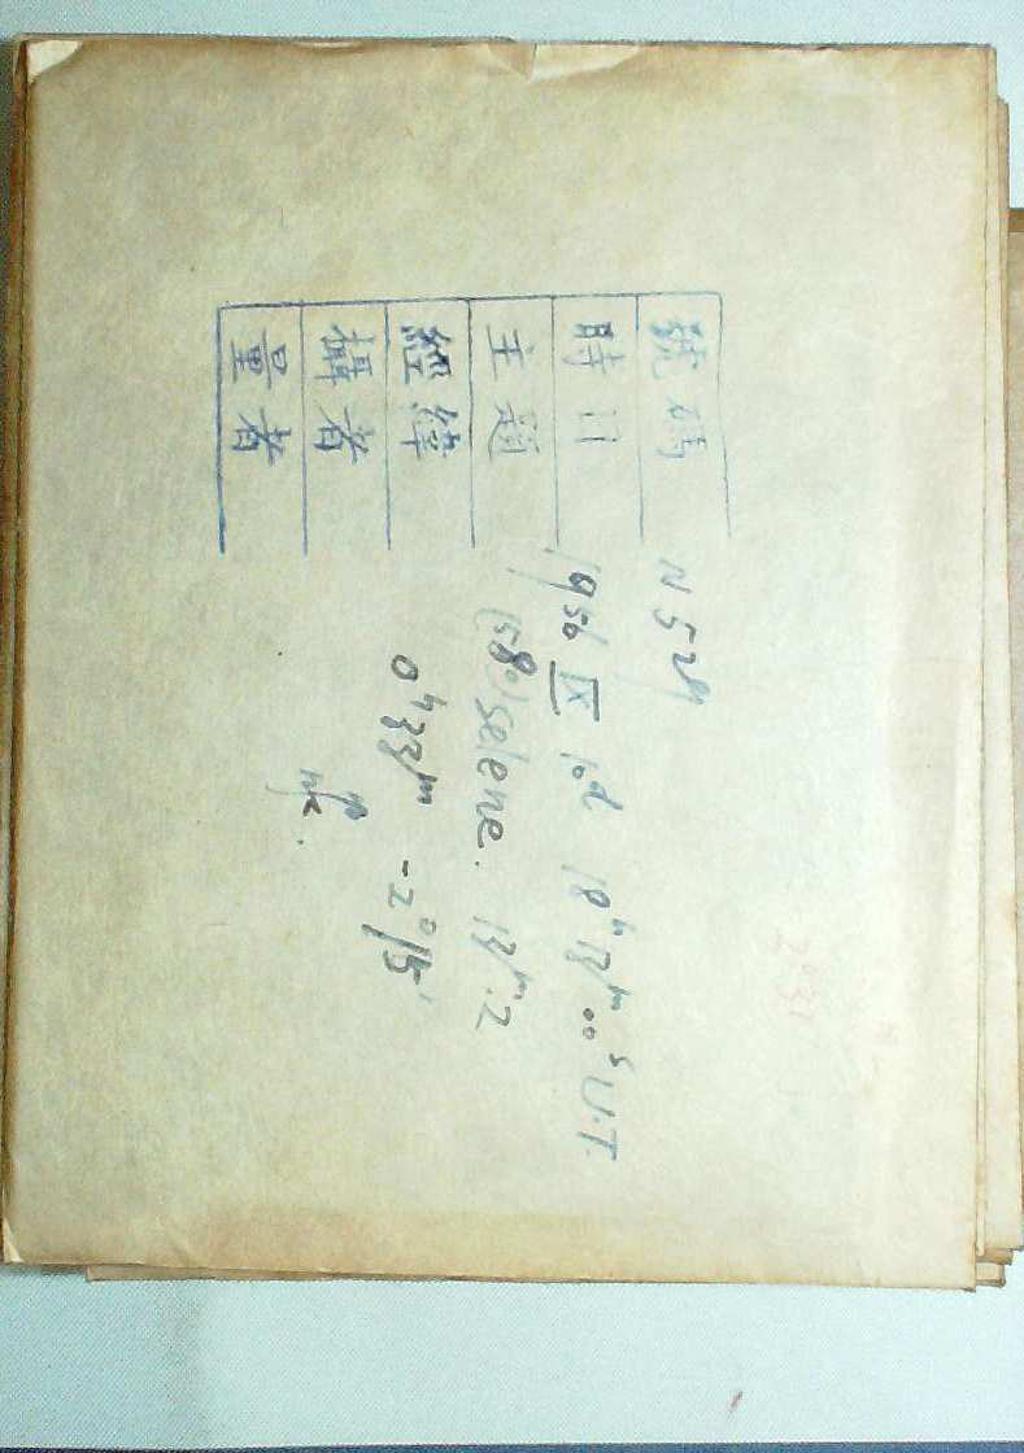 號碼 N 529
時日 1956 IX 10d 18h 13m 00s U.T.
主題 (580) selene. 13m.2
經緯 0h 33m -2° 15'
攝者
量者